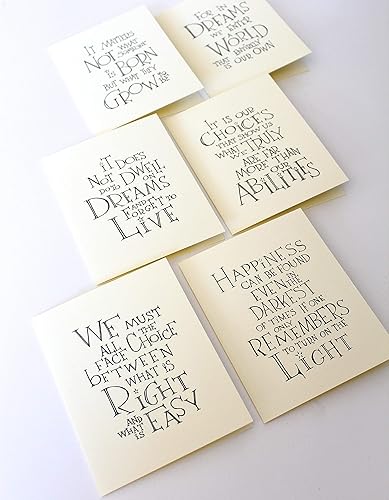 IT MATTERS
NOT WHAT SOMEONE
IS BORN
BUT WHAT THEY
GROW TO BE
FOR IN
DREAMS
WE ENTER
A WORLD
THAT ENTIRELY
IS OUR OWN
IT DOES
NOT DO TO DWELL ON
DREAMS
AND FORGET TO
LIVE
IT IS OUR
CHOICES
THAT SHOW US
WHAT WE TRULY
ARE FAR
MORE THAN OUR
ABILITIES
WE MUST
ALL FACE THE CHOICE
BETWEEN
WHAT IS
RIGHT
AND WHAT IS EASY
HAPPINESS
CAN BE FOUND
EVEN IN THE
DARKEST
OF TIMES IF ONE
ONLY
REMEMBERS
TO TURN ON THE
LIGHT